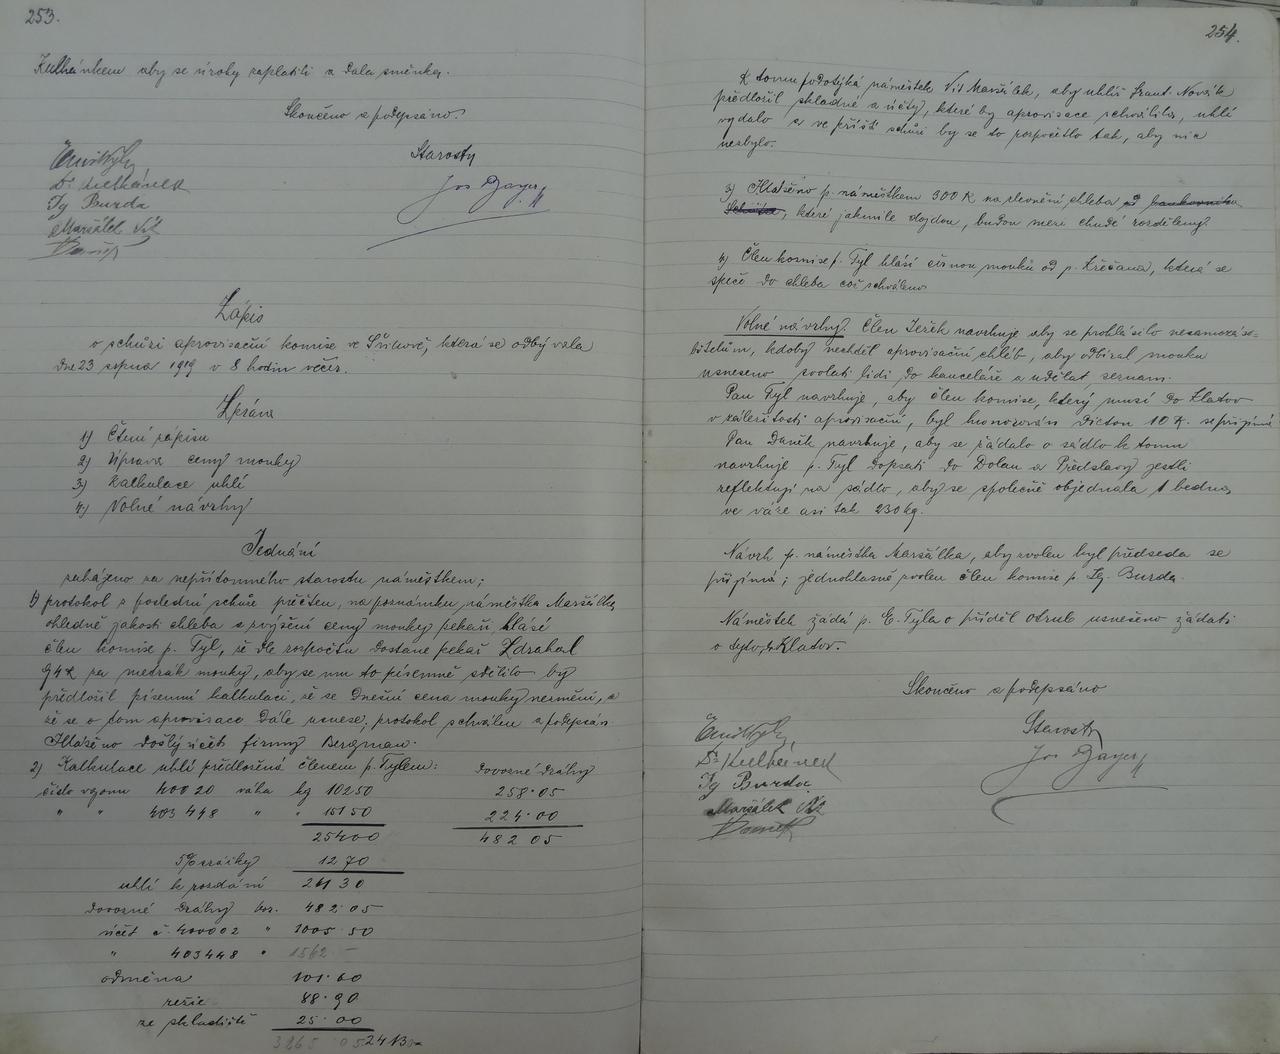 253.
Kulhánkem aby se úroky zaplatili a dala směnka.
Skončeno a podepsáno.
Starosta
Emil Tyl
Dr Kulhánek
Jos Bayer
Ig Burda
Maršálek Vít
Daněk
Zápis
o schůzi aprovisační komise ve Švihově, která se odbývala
dne 23 srpna 1919 v 8 hodin večer.
Zpráva
1) Čtení zápisu
2) Úprava ceny mouky
3) Kalkulace uhlí
4) Volné návrhy
Jednání
zahájeno za nepřítomného starostu náměstkem;
1) protokol z poslední schůze přečten, na poznámku náměstka Maršálka
ohledně jakosti chleba a zvýšení ceny mouky pekaři, hlásí
člen komise p. Tyl, že dle rozpočtu dostane pekař Zdrahal
94 K za metrák mouky, aby se mu to písemně sdělilo by
předložil písemní kalkulaci, že se dnešní cena mouky nezmění, a
že se o tom aprovisace dále usnese; protokol schválen a podepsán
Hlášeno došlý účet firmy Bergman.
2) Kalkulace uhlí předložená členem p. Tylem: Dovozné dráhy
číslo vagonu 40020 váha kg 10250 258.05
" " 403448 " " 15150 224.00
25400 482 05
5% srážky 1270
uhlí k prodání 24130
Dovozné dráhy kor. 482.05
účet č. 400002 " 1005.50
" 403448 " 1562 –
odměna 101.60
režie 88.90
ze skladiště 25.00
3265 05 24130
254.
K tomu podotýká náměstek Vít Maršálek, aby uhlíř Frant. Novák
předložil skladné a účty, které by aprovisace schválila, uhlí
vydalo a ve příští schůzi by se to rozpočítlo tak, aby nic
nezbylo.
3) Hlášeno p. náměstkem 300 K na zlevnění chleba od bankovního
, které jakmile dojdou, budou mezi chudé rozděleny.
4) Člen komise p. Tyl hlásí černou mouku od p. Křečana, která se
speče do chleba což schváleno
Volné návrhy. Člen Ježek navrhuje aby se prohlásilo nesamozáso-
bitelům, kdoby nechtěl aprovisační chléb, aby odbíral mouku
usneseno svolati lidi do kanceláře a udělat seznam.
Pan Tyl navrhuje, aby člen komise, který musí do Klatov
v záležitosti aprovisační, byl honorován dietou 10 K. se přijímá
Pan Daněk navrhuje, aby se žádalo o sádlo k tomu
navrhuje p. Tyl dopsati do Dolan a Předslavy jestli
reflektují na sádlo, aby se společně objednala 1 bedna,
ve váze asi tak 230 kg.
Návrh p. náměstka Maršálka, aby zvolen byl předseda se
přijímá; jednohlasně zvolen člen komise p. Ig. Burda.
Náměstek žádá p. E. Tyla o příděl otrub usneseno žádati
o tyto z Klatov.
Skončeno a podepsáno
Starosta
Emil Tyl
Dr Kulhánek
Jos Bayer
Ig Burda
Maršálek Vít
Daněk